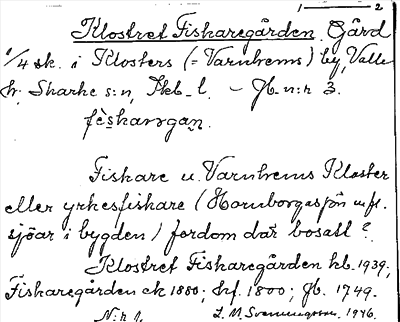 1 — 2
Klostret Fiskaregården. Gård
1/4 sk. i Klosters (= Varnhems) by, Valle
hr, Skarke s:n, Skb. l. – Jb. n:r 3.
Fiskare u. Varnhems Kloster
eller yrkesfiskare (Hornborgasjön m.fl.
sjöar i bygden) fordom där bosatt?
Klostret Fiskaregården kb. 1939;
Fiskaregården ek 1880; hf. 1800; Jb. 1749.
1946.